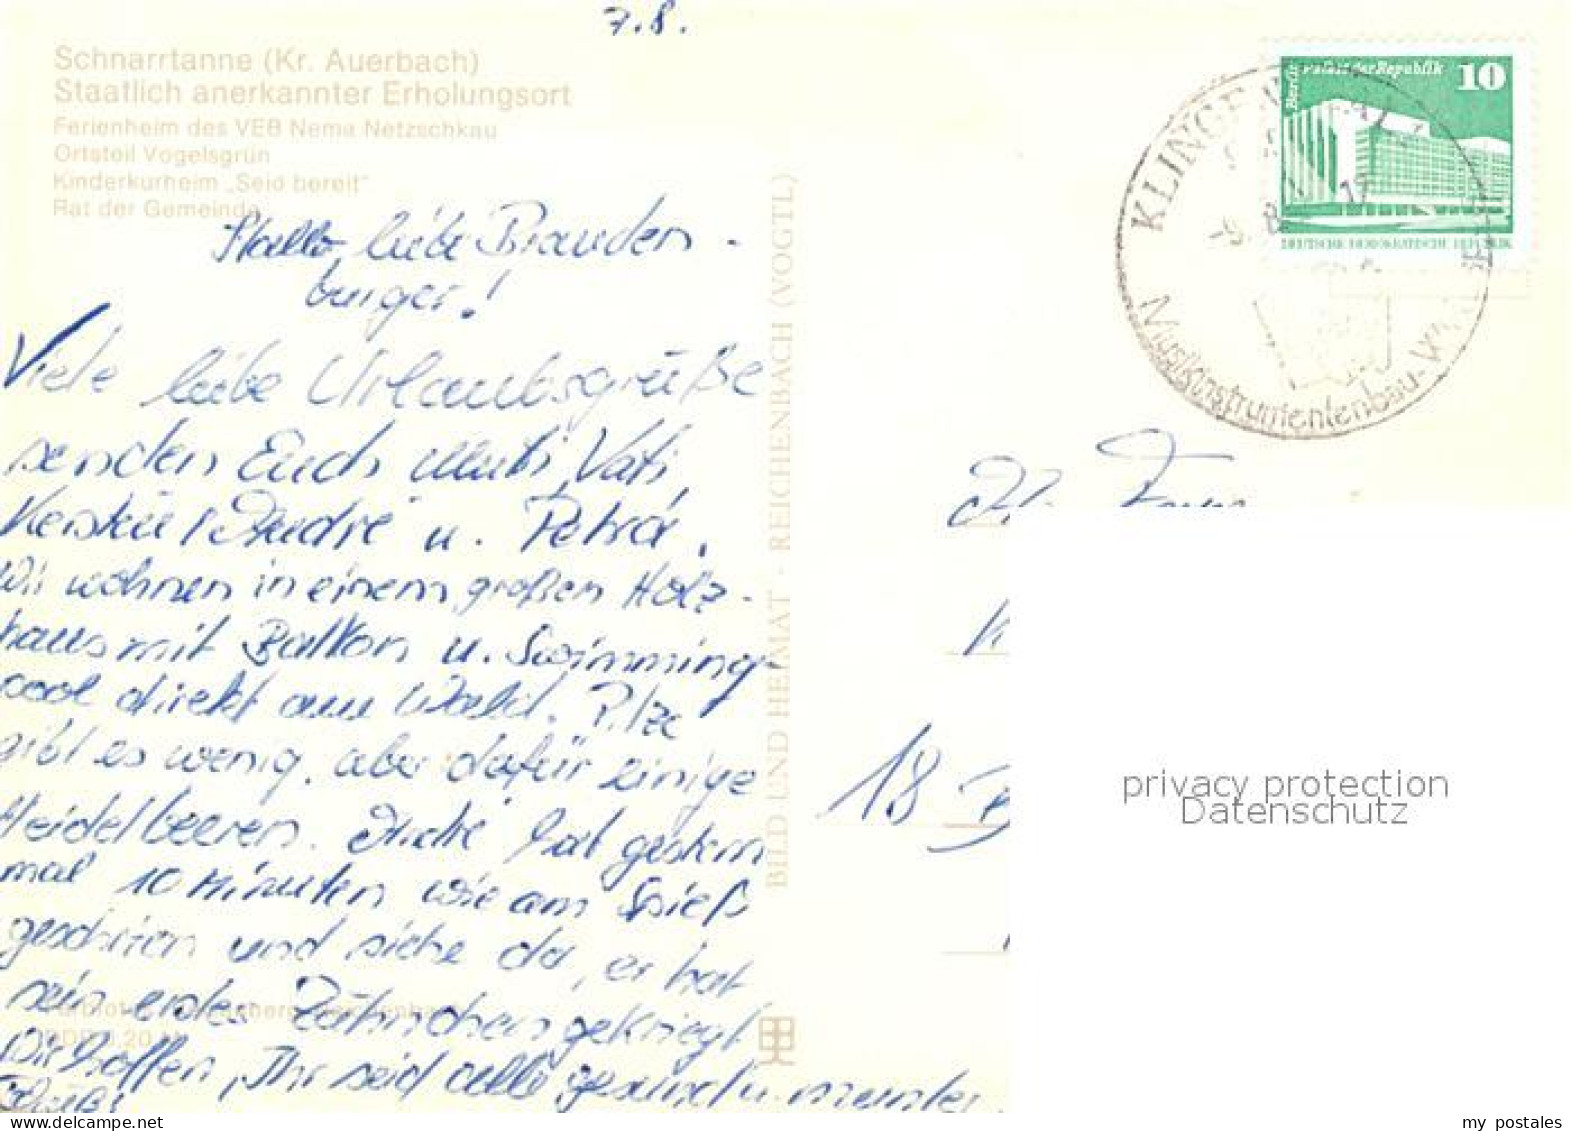 7.8.
Schnarrtanne (Kr. Auerbach)
Staatlich anerkannter Erholungsort
Ferienheim des VEB Nema Netzschkau
Ortsteil Vogelsgrün
Kinderkurheim „Seid bereit"
Rat der Gemeinde
Hallo, liebe Branden-
burger!
Viele liebe Urlaubsgrüße
senden Euch Mutti, Vati,
Kerstin, André u. Petra.
Wir wohnen in einem großen Holz-
haus mit Balkon u. Swimming-
pool direkt am Wald. Pilze
gibt es wenig, aber dafür einige
Heidelbeeren. André hat gestern
mal 10 Minuten wie am Spieß
geschrien und siehe da, er hat
sein erstes Zähnchen gekriegt.
Wir hoffen, Ihr seid alle gesund u. munter.
BILD UND HEIMAT · REICHENBACH (VOGTL)
Berlin Palast der Republik 10
DEUTSCHE DEMOKRATISCHE REPUBLIK
KLINGENTHAL
-9. 8.
Musikinstrumentenbau-
Fam
K
18 B
privacy protection
Datenschutz
my postales
delcampe.net